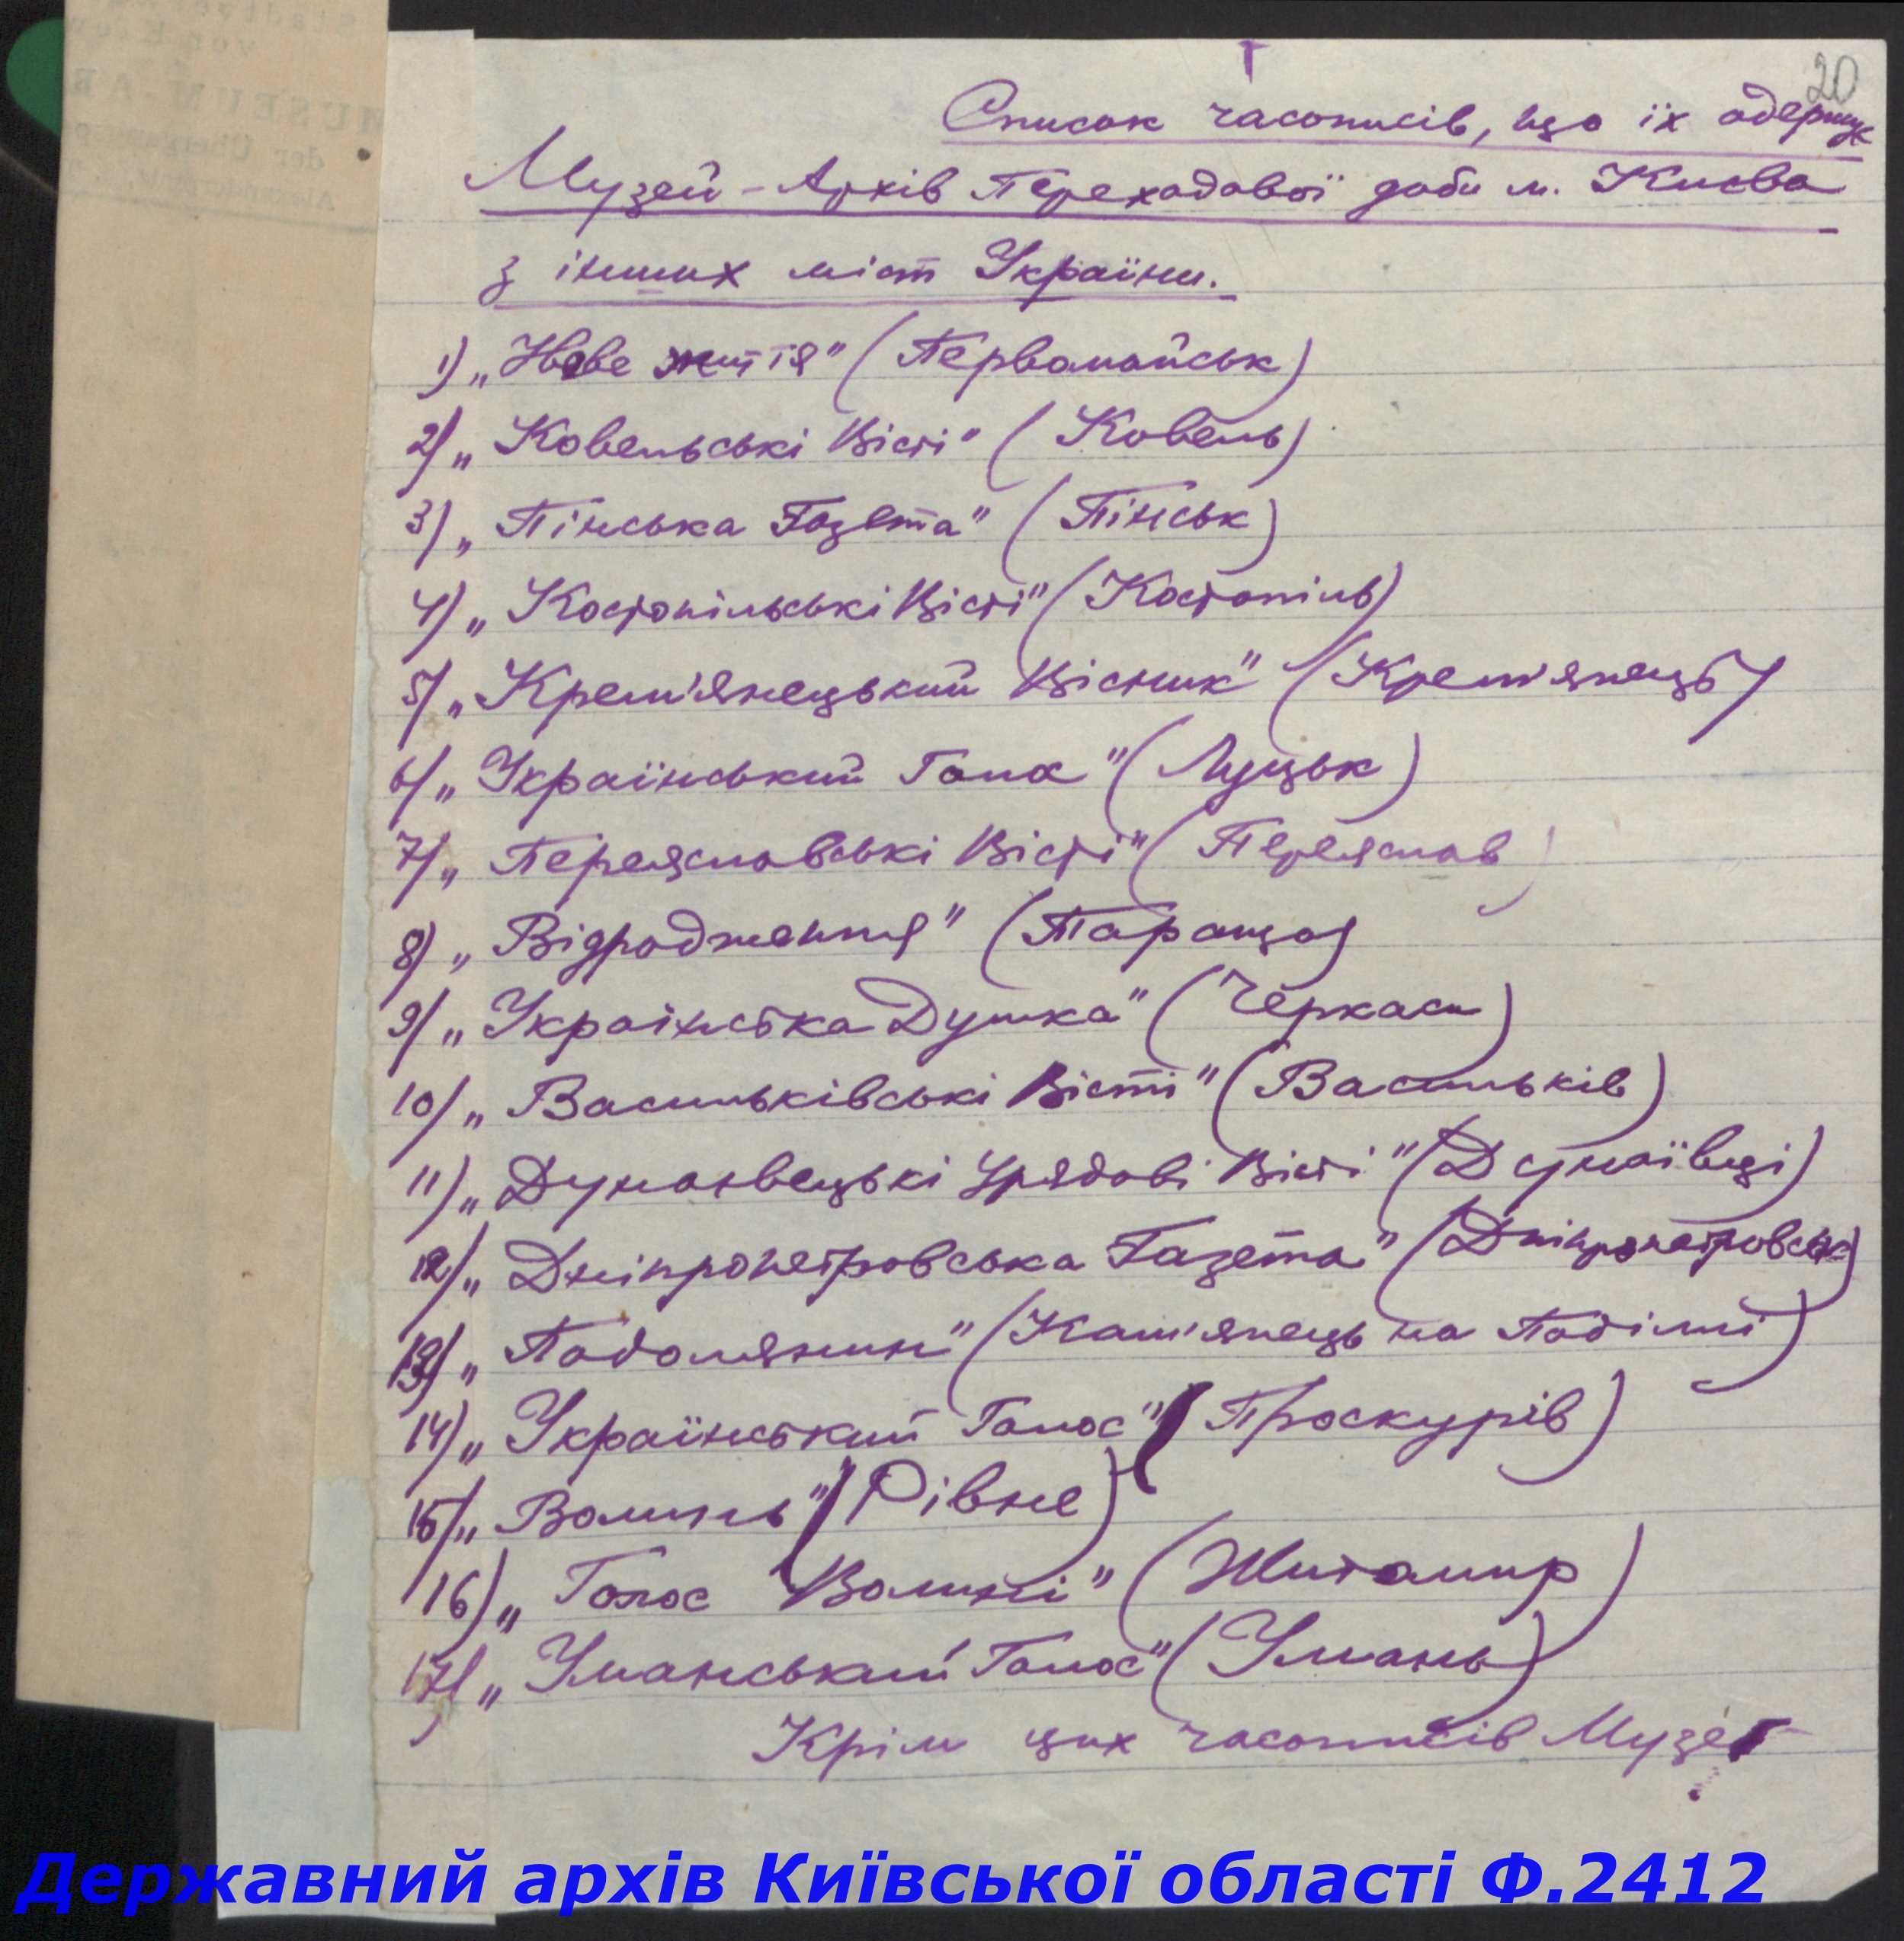 20
Список часописів, що їх одержує
Музей-Архів Переходової доби м. Києва
з інших міст України.
1) „Нове життя" (Первомайськ)
2) „Ковельські Вісті" (Ковель)
3) „Пінська Газета" (Пінськ)
4) „Костопільські Вісті" (Костопіль)
5) „Крем'янецький Вісник" (Крем'янець)
6) „Український Голос" (Луцьк)
7) „Переяславські Вісті" (Переяслав)
8) „Відродження" (Тараща)
9) „Українська Думка" (Черкаси)
10) „Васильківські Вісті" (Васильків)
11) „Дунаєвецькі Урядові Вісті" (Дунаївці)
12) „Дніпропетровська Газета" (Дніпропетровськ)
13) „Подолянин" (Кам'янець на Поділлі)
14) „Український Голос" (Проскурів)
15) „Волинь" (Рівне)
16) „Голос Волині" (Житомир)
17) „Уманський Голос" (Умань)
Крім цих часописів Музей
Державний архів Київської області Ф.2412